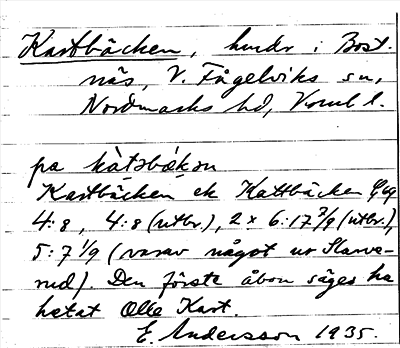 Kastbäcken, hmdr i Bost.
näs, V. Fågelviks sn,
Nordmarks hd, Vrml l.
pa kàtsbǽkən
Kastbäcken el. Kattbäcken
4:8, 4:8 (utbr.), 2 x 6:17 7/9 (utbr.),
5:7 1/9 (varav något ur Slarve-
rud). Den förste åbon säges ha
hetat Olle Kast.
E. Andersson 1935.